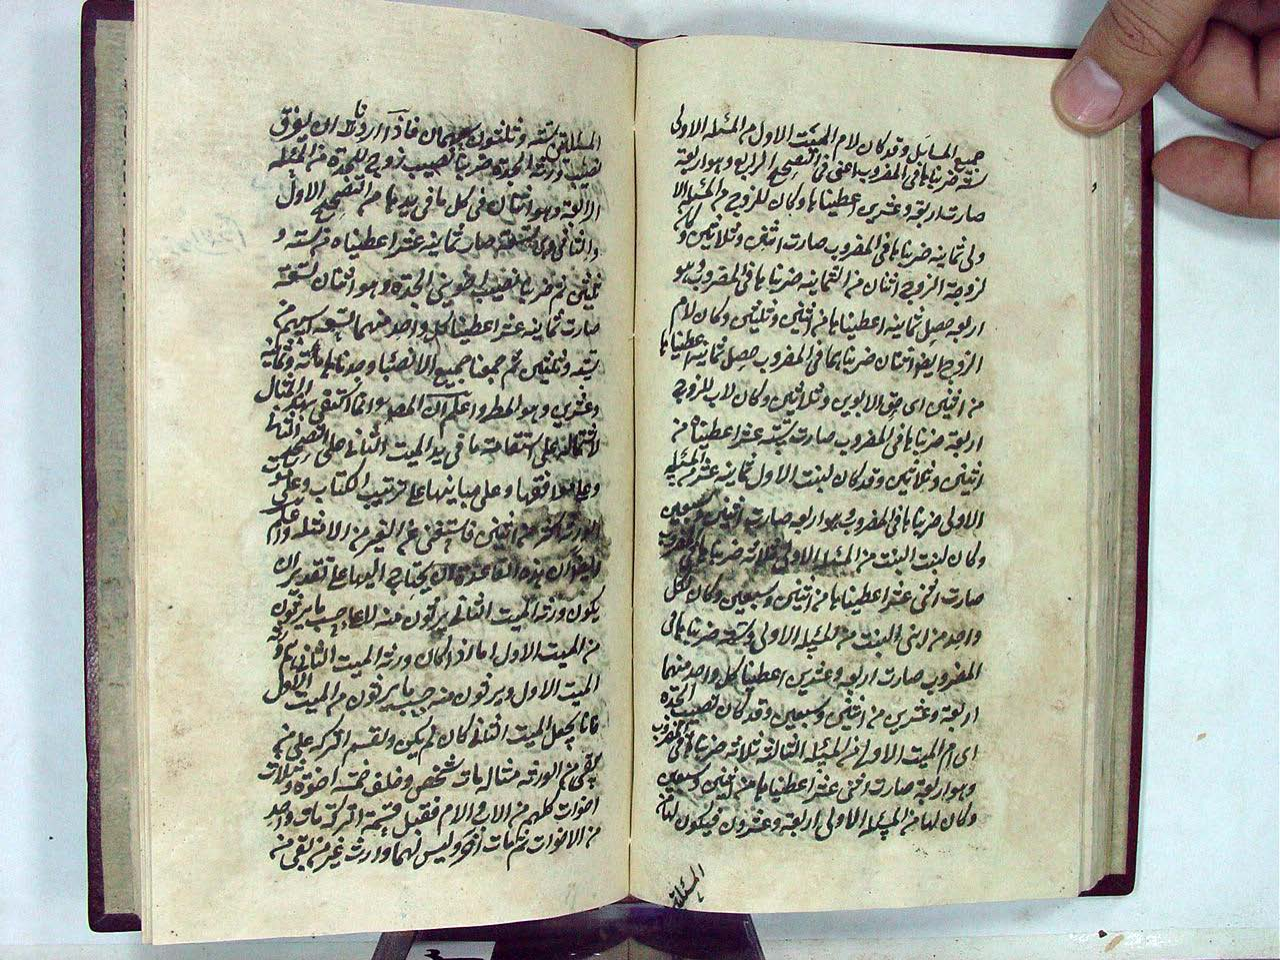 جميع المسايل وقد كان لام الميت الاول من المسئلة الاولى
ستة ضربناها فى المضروب اعنى فى التصحيح الرابع وهو اربعة
صارت اربعة وعشرين اعطيناها وكان للزوج من المسئلة الا
ولى ثمانية ضربناها فى المضروب صارت اثنين وثلاثين وكان
لزوجة الزوج اثنان من الثمانية ضربناها فى المضروب وهو
اربعة حصل ثمانية اعطيناها من اثنين وثلثين وكان لام
الزوج ايضا اثنان ضربناهما فى المضروب حصل ثمانية اعطيناها
من اثنين اى حق الابوين وثلاثين وكان لاب الزوج
اربعة ضربناها فى المضروب صارت ستة عشر اعطيناه من
اثنين وثلاثين وقد كان لبنت الاول ثمانية عشر من المسئلة
الاولى ضربناها فى المضروب وهو اربعة صارت اثنين وسبعين
وكان لبنت البنت من المسئلة الاولى ثلاثة ضربناها فى المضروب
صارت اثنى عشر اعطيناها من اثنين وسبعين وكان لكل
واحد من ابنى البنت من المسئلة الاولى ستة ضربناها فى
المضروب صارت اربعة وعشرين اعطينا كل واحد منهما
اربعة وعشرين من اثنين وسبعين وقد كان نصيب الجدة
اى ام الميت الاول من المسئلة الثالثة ثلاثة ضربناها فى المضروب
وهو اربعة صارت اثنى عشر اعطيناها من اثنين وسبعين
وكان لها من المسئلة الاولى اربعة وعشرون فيكون لها من
المسئلة
المسئلتين ستة وثلثون سهمان فاذا اردنا ان نفرق
نصيب ورثة الجدة ضربنا نصيب زوج للجدة من المسئلة
الرابعة وهو اثنان فى كل ما فى يدها من التصحيح الاول
والثانى وهى تسعة صارت ثمانية عشر اعطيناه من ستة و
ثلثين ثم ضربنا نصيب اخوين الجدة وهو اثنان لتسعة
صارت ثمانية عشر اعطينا كل واحد منهما تسعة اسهم من
ستة وثلثين ثم جمعنا جميع الانصباء وجدناها مائة وثمانية
وعشرين وهو المط واعلم ان المص انما اكتفى بهذا المثال
لاشتماله على استقامة ما فى يد الميت الثانى على التصحيح الثانى
وعلى موافقتها وعلى مباينتها على ترتيب الكتاب وعلى
اكثر من اثنين فاستغنى عن الغير من الامثلة واعلم
ايضا ان هذه القاعدة انما يحتاج اليها على تقدير ان
يكون ورثة الميت الثانى يرثون عنه لا على حسب ما يرثون
من الميت الاول اما اذا كان ورثة الميت الثانى هم ورثة
الميت الاول ويرثون منه حسب ما يرثون من الميت الاول
فانا نجعل الميت الثانى كان لم يكن ونقسم التركة على من
بقى من الورثة مثاله مات شخص وخلف خمسة اخوة وثلاث
اخوات كلهم من الاب والام فقبل قسمة التركة مات واحد
من الاخوات ثم مات اخ وليس لهما وارث غير من بقى من